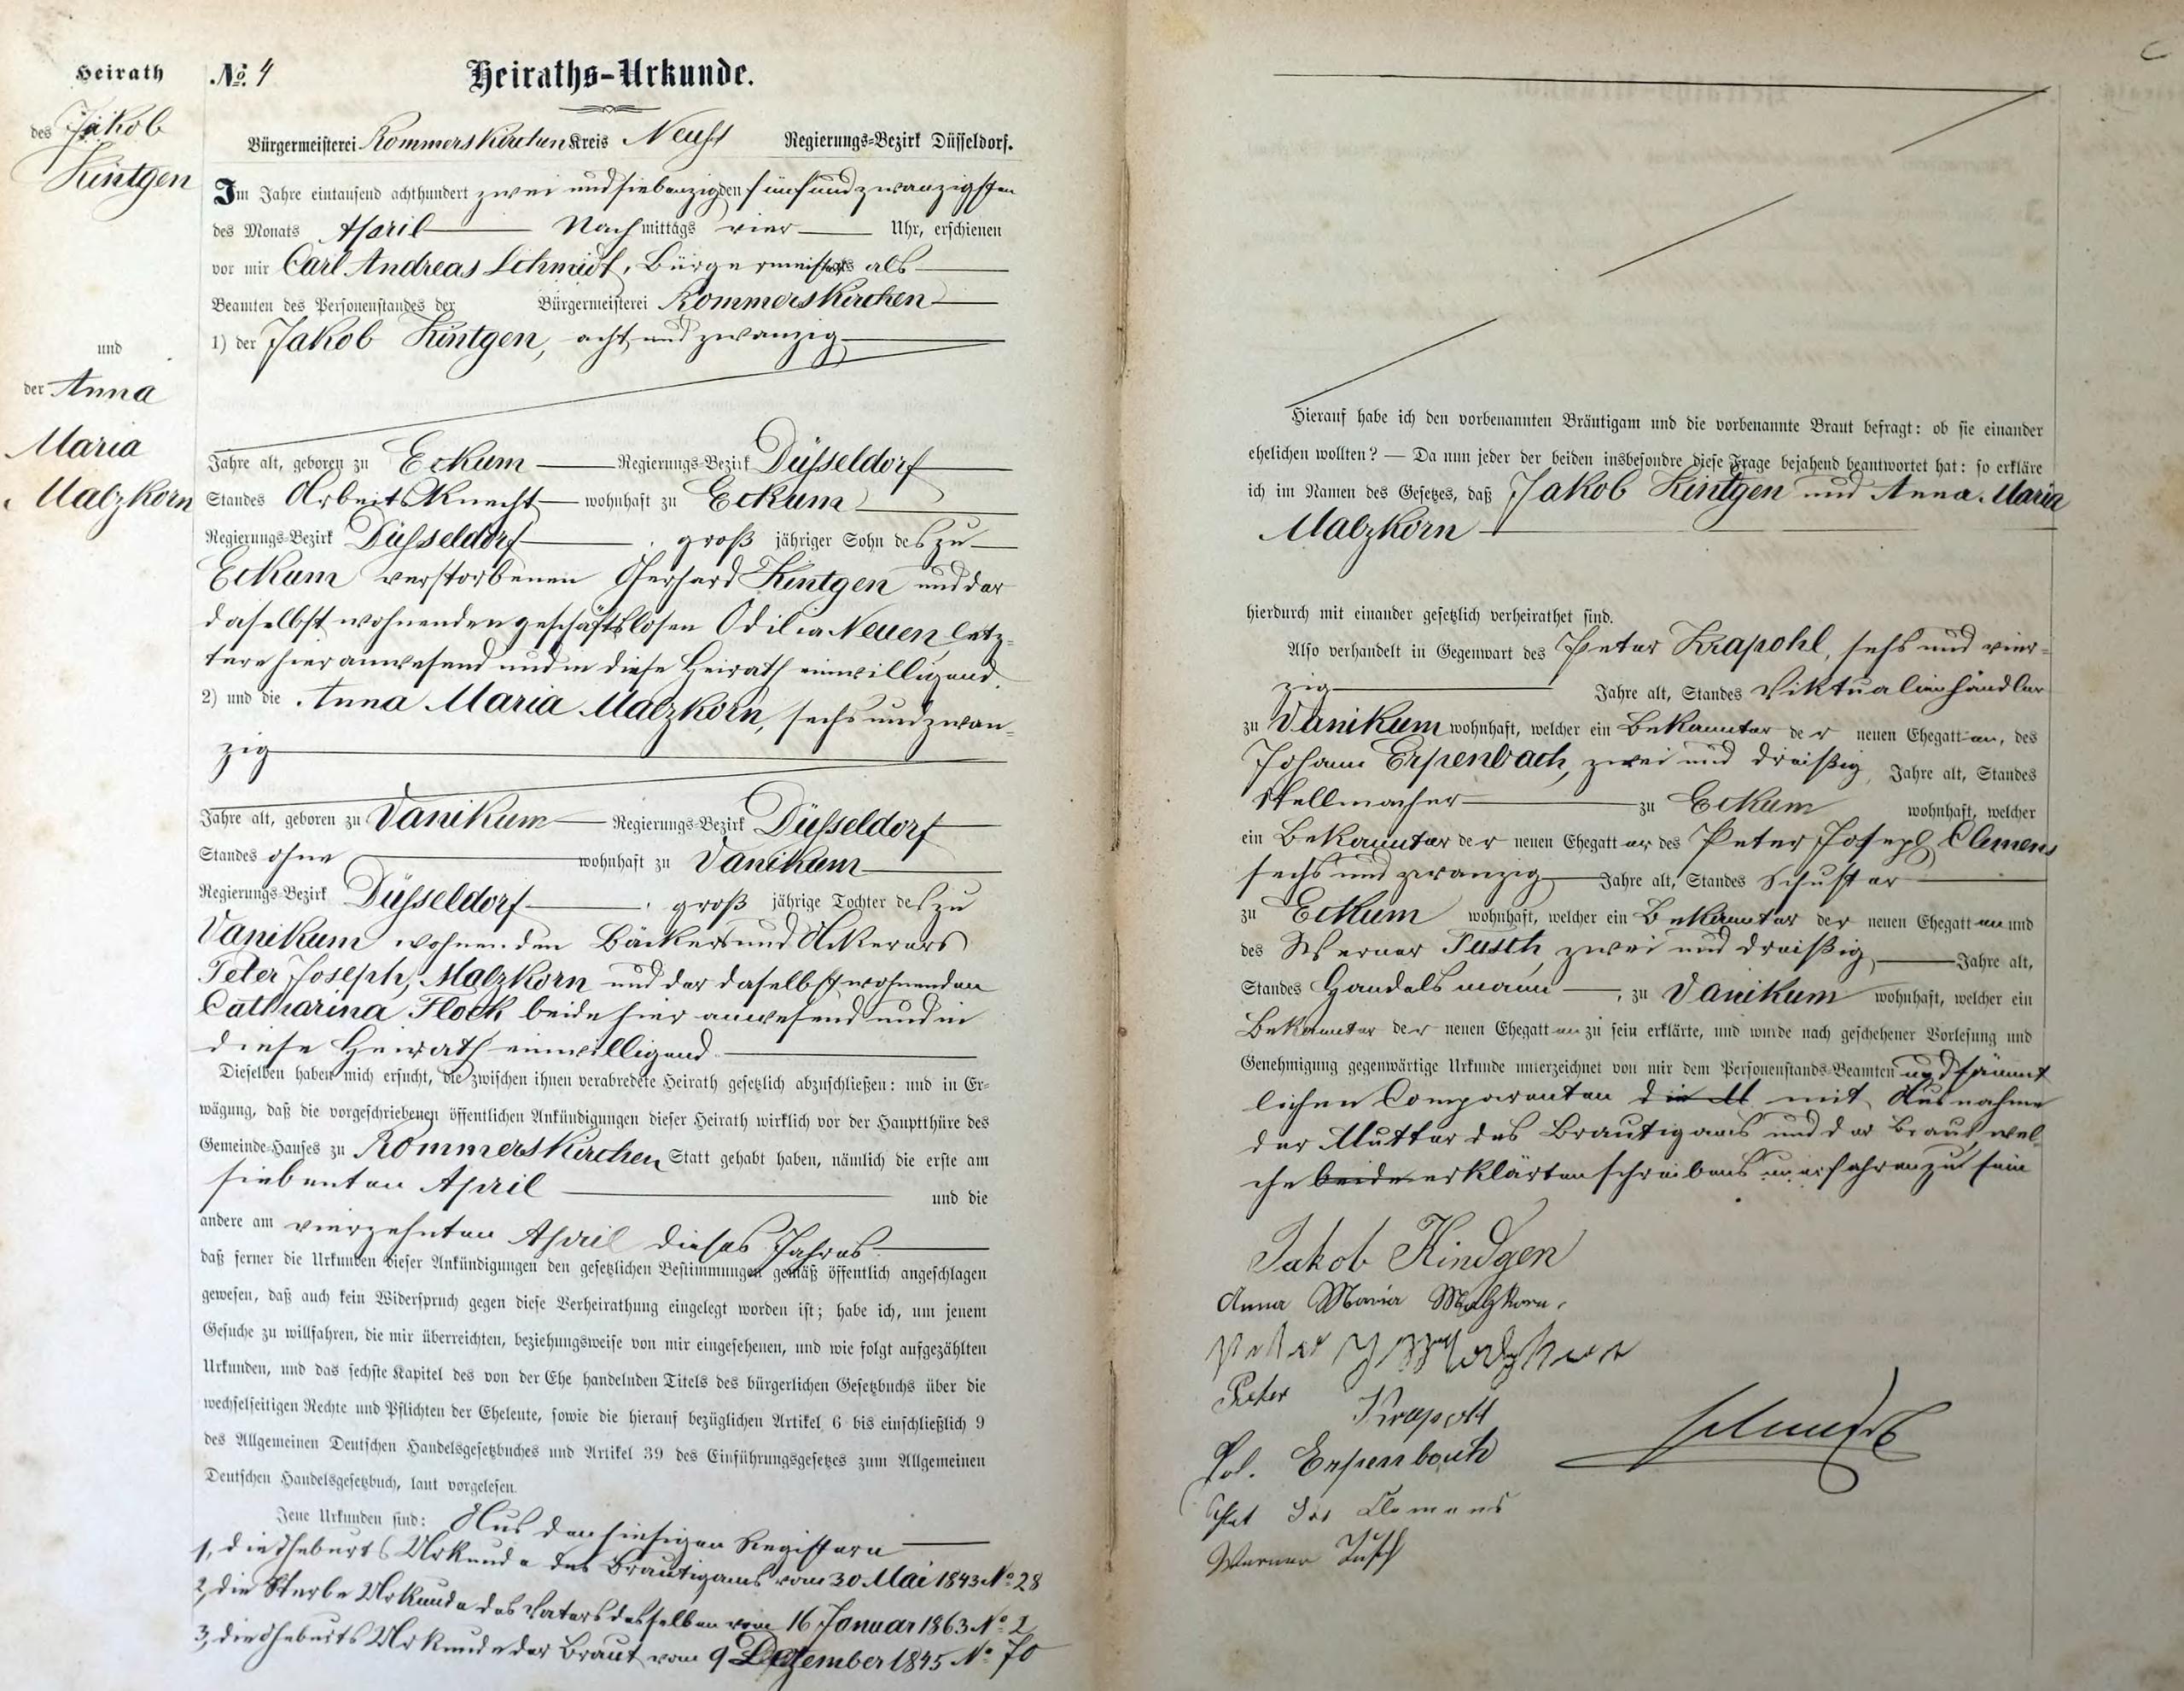 Heirath
des Jakob
Kintgen
und
der Anna
Maria
Malzkorn
№. 4
Heiraths-Urkunde.
Bürgermeisterei Rommerskirchen Kreis Neuß Regierungs-Bezirk Düsseldorf.
Im Jahre eintausend achthundert zwei und siebenzig den fünf und zwanzigsten
des Monats April Nachmittags vier Uhr, erschienen
vor mir Carl Andreas Schmidt, Bürgermeister als
Beamten des Personenstandes der Bürgermeisterei Rommerskirchen
1) der Jakob Kintgen, acht und zwanzig
Jahre alt, geboren zu Eckum Regierungs-Bezirk Düsseldorf
Standes Arbeitsknecht wohnhaft zu Eckum
Regierungs-Bezirk Düsseldorf, groß jähriger Sohn des zu
Eckum verstorbenen Gerhard Kintgen und der
daselbst wohnenden geschäftslosen Odilia Neuen letz=
tere hier anwesend und in diese Heirath einwilligend.
2) und die Anna Maria Malzkorn, sechs und zwan=
zig
Jahre alt, geboren zu Vanikum Regierungs-Bezirk Düsseldorf
Standes ohne wohnhaft zu Vanikum
Regierungs-Bezirk Düsseldorf, groß jährige Tochter des zu
Vanikum wohnenden Bäckers und Ackerers
Peter Joseph Malzkorn und der daselbst wohnenden
Catharina Flock beide hier anwesend und in
diese Heirath einwilligend.
Dieselben haben mich ersucht, die zwischen ihnen verabredete Heirath gesetzlich abzuschließen: und in Er=
wägung, daß die vorgeschriebenen öffentlichen Ankündigungen dieser Heirath wirklich vor der Hauptthüre des
Gemeinde-Hauses zu Rommerskirchen Statt gehabt haben, nämlich die erste am
siebenten April und die
andere am vierzehnten April dieses Jahres
daß ferner die Urkunden dieser Ankündigungen den gesetzlichen Bestimmungen gemäß öffentlich angeschlagen
gewesen, daß auch kein Widerspruch gegen diese Verheirathung eingelegt worden ist; habe ich, um jenem
Gesuche zu willfahren, die mir überreichten, beziehungsweise von mir eingesehenen, und wie folgt aufgezählten
Urkunden, und das sechste Kapitel des von der Ehe handelnden Titels des bürgerlichen Gesetzbuchs über die
wechselseitigen Rechte und Pflichten der Eheleute, sowie die hierauf bezüglichen Artikel 6 bis einschließlich 9
des Allgemeinen Deutschen Handelsgesetzbuches und Artikel 39 des Einführungsgesetzes zum Allgemeinen
Deutschen Handelsgesetzbuch, laut vorgelesen.
Jene Urkunden sind: Aus den hiesigen Registern
1, die Geburts Urkunde des Bräutigams vom 30 Mai 1843 № 28
2, die Sterbe Urkunde des Vaters desselben vom 16 Januar 1863 № 2
3, die Geburts Urkunde der Braut vom 9 Dezember 1845 № 70
Hierauf habe ich den vorbenannten Bräutigam und die vorbenannte Braut befragt: ob sie einander
ehelichen wollten? — Da nun jeder der beiden insbesondre diese Frage bejahend beantwortet hat: so erkläre
ich im Namen des Gesetzes, daß Jakob Kintgen und Anna Maria
Malzkorn
hierdurch mit einander gesetzlich verheirathet sind.
Also verhandelt in Gegenwart des Peter Krapohl, sechs und vier=
zig Jahre alt, Standes Viktualienhändler
zu Vanikum wohnhaft, welcher ein Bekannter der neuen Ehegatten, des
Johann Erpenbach, zwei und dreißig, Jahre alt, Standes
Stellmacher zu Eckum wohnhaft, welcher
ein Bekannter der neuen Ehegatten des Peter Joseph Clemens
sechs und zwanzig Jahre alt, Standes Schuster
zu Eckum wohnhaft, welcher ein Bekannter der neuen Ehegatten und
des Werner Tusch, zwei und dreißig, Jahre alt,
Standes Handelsmann, zu Vanikum wohnhaft, welcher ein
Bekannter der neuen Ehegatten zu sein erklärte, und wurde nach geschehener Vorlesung und
Genehmigung gegenwärtige Urkunde unterzeichnet von mir dem Personenstands-Beamten und sämmt
lichen Comparenten die M mit Ausnahme
der Mutter des Bräutigams und der Braut wel=
che beide erklärten schreibens unerfahren zu sein
Jakob Kindgen
Anna Maria Malzkorn.
Peter J Malzkorn
Peter Krapohl
Joh. Erpenbach
Pet Jos Clemens
Werner Tusch
Schmidt